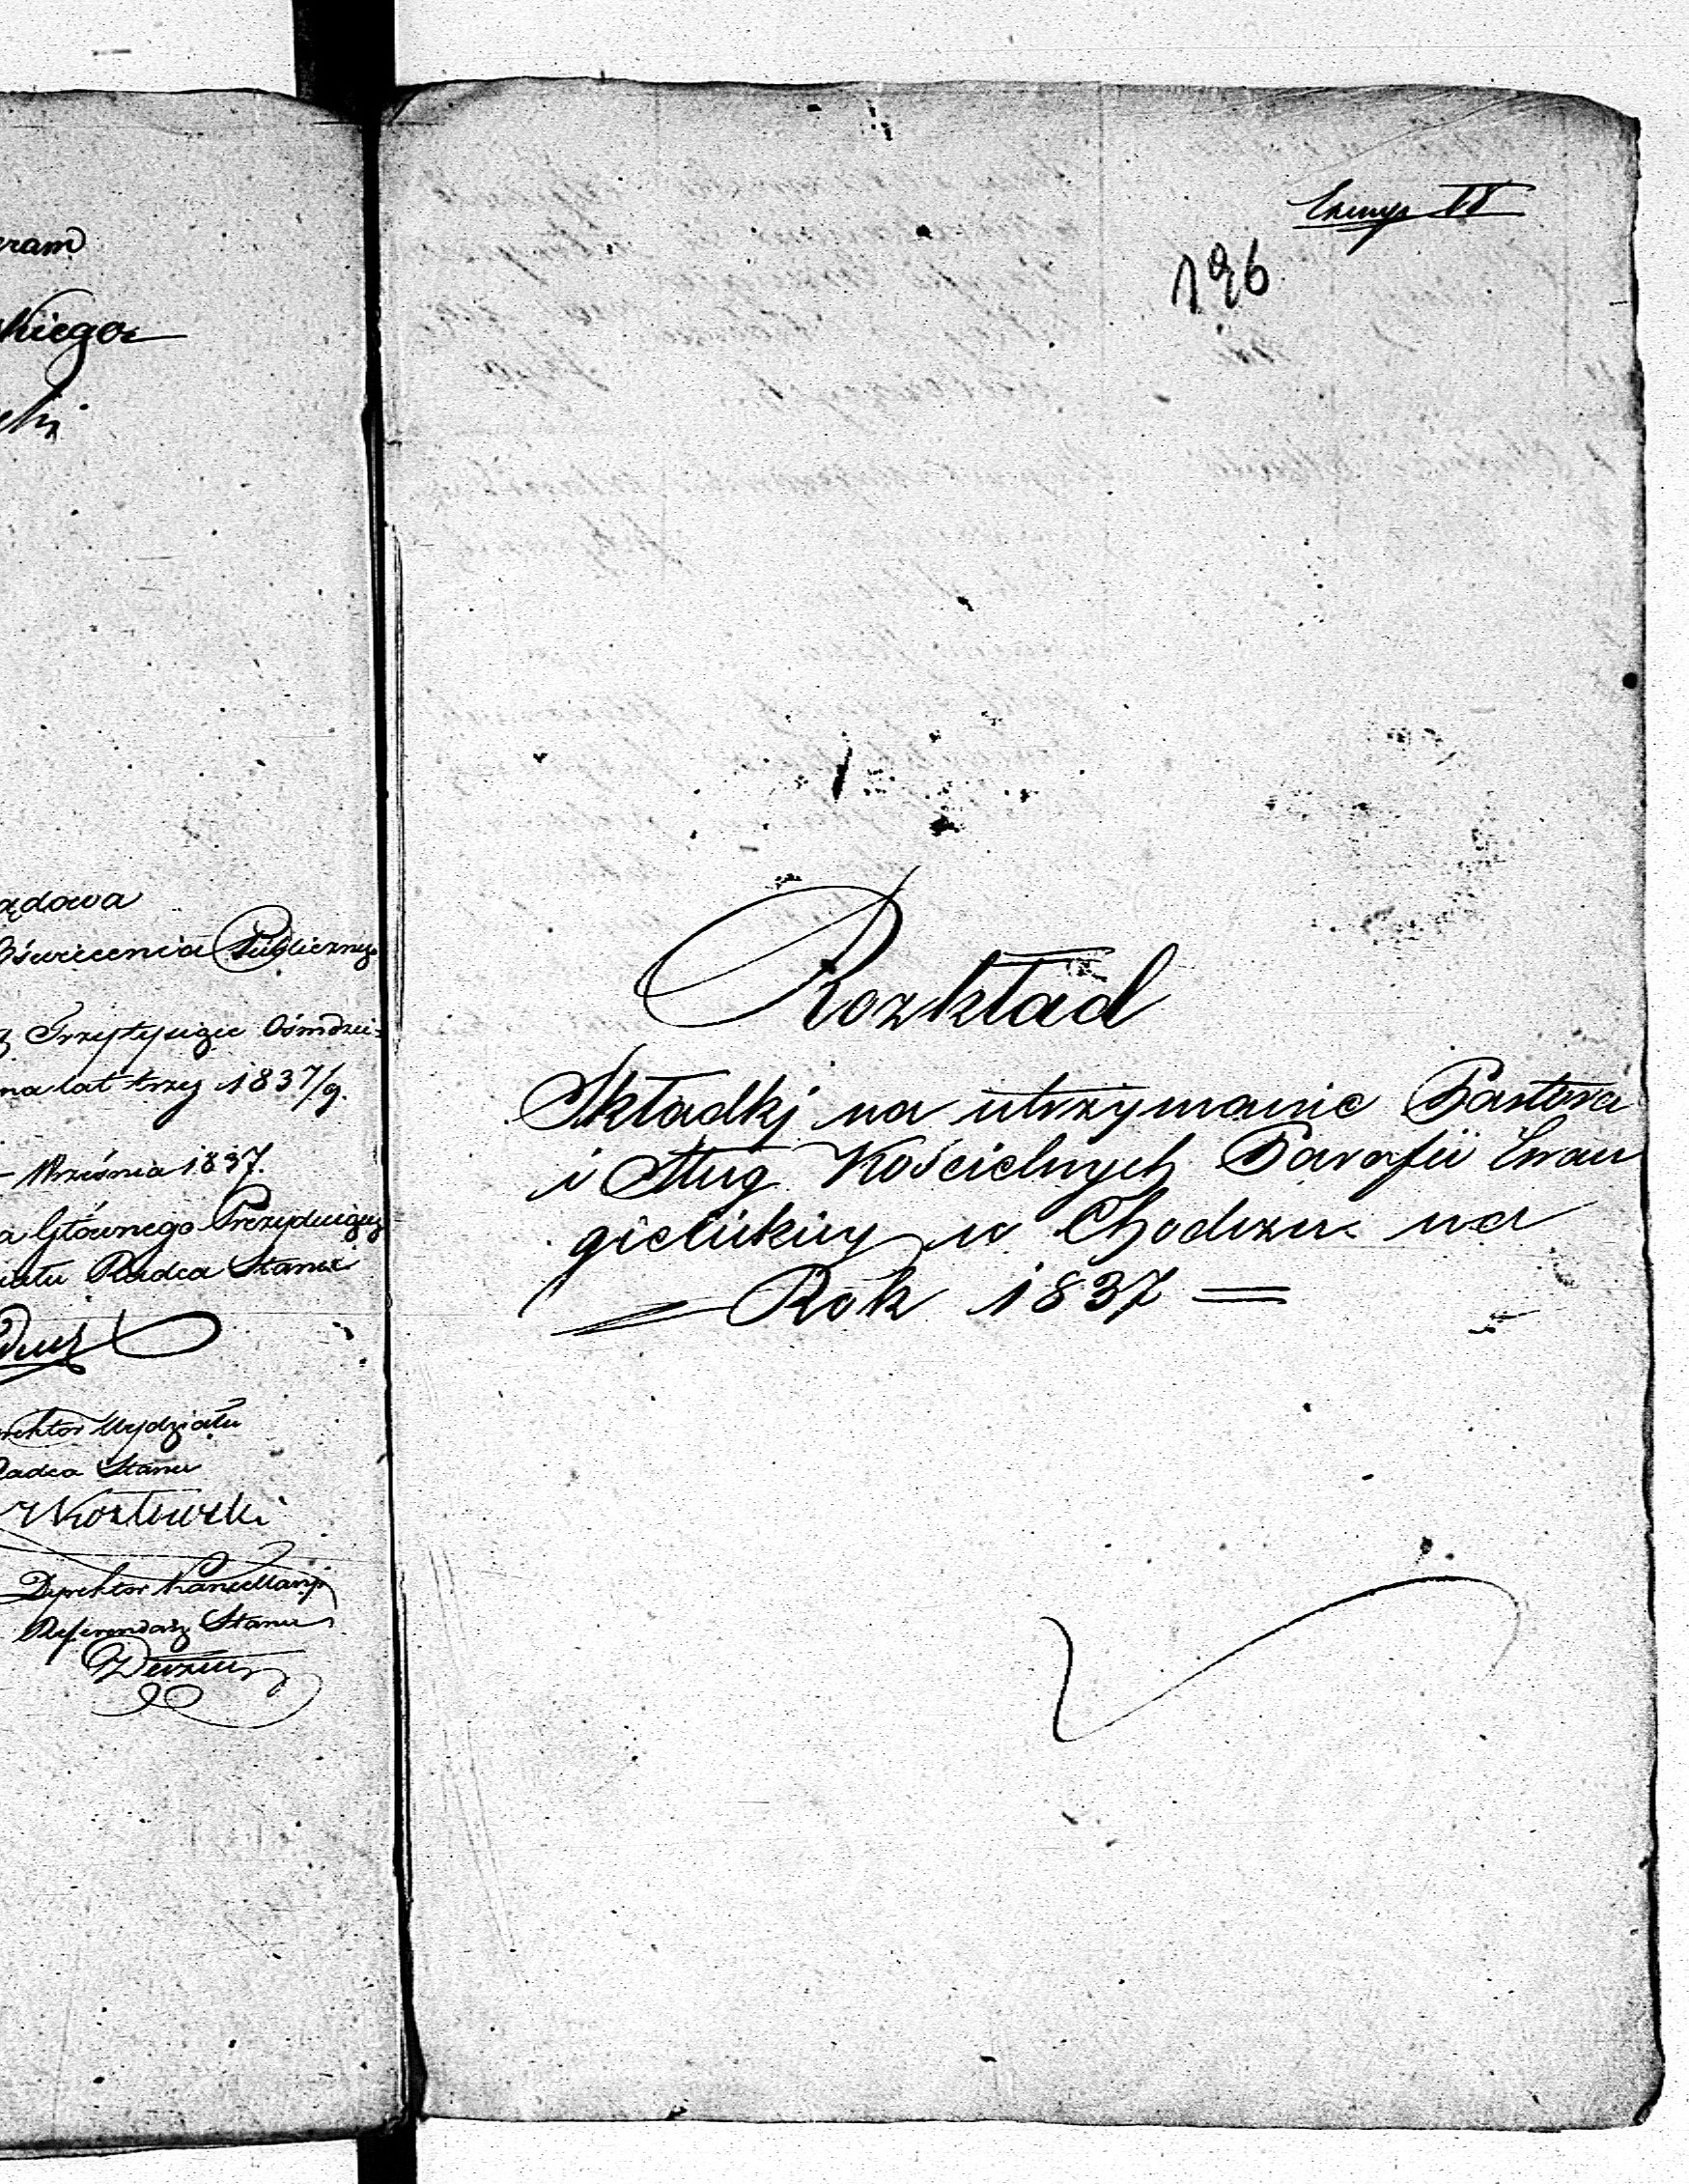 ądowa
Oświecenia Publiczneg
Trzytysiące Ośmdzie-
na lat trzy 1837/9.
Września 1837.
a Głównego Prezydując
iału Radca Stanu
rektor Wydziału
Radca Stanu
Kozłowski
Dyrektor Kancellaryi
Referendarz Stanu
196
Rozkład
Składkj na utrzymanie Pastora
i Sług Kościelnych Parafii Ewan
gielickiey w Chodczu na
Rok 1837